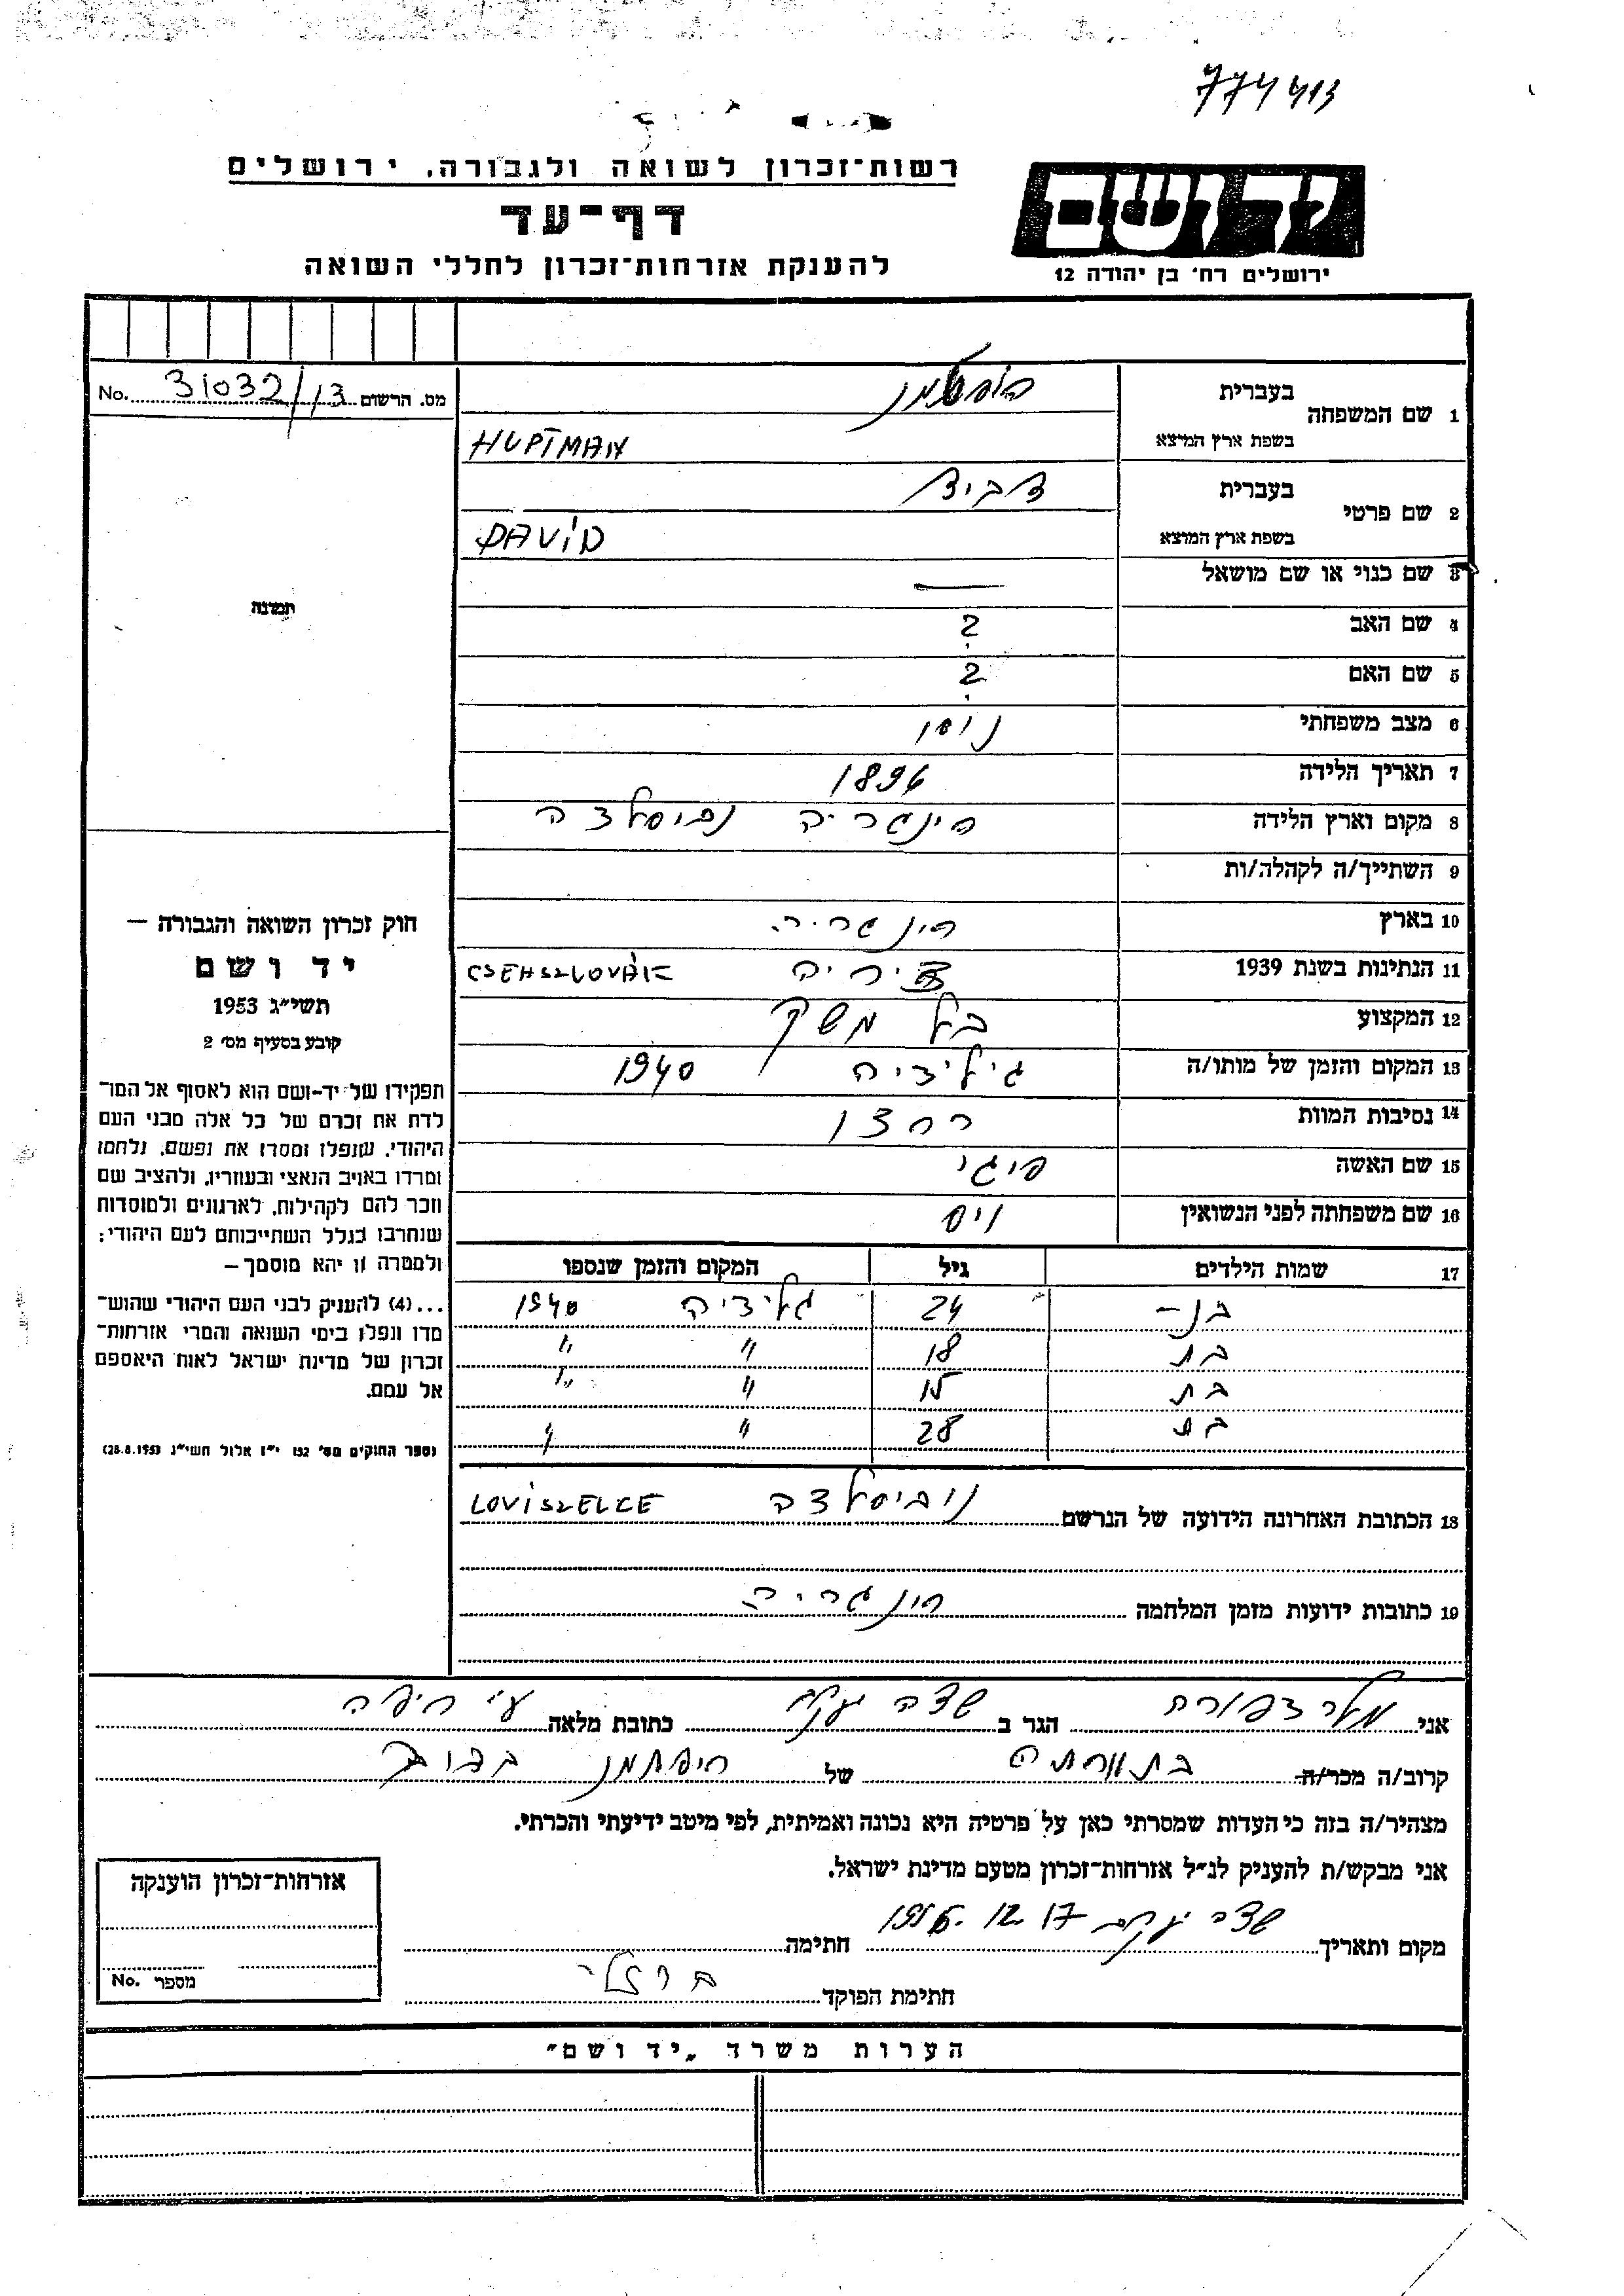 774413
רשות-זכרון לשואה ולגבורה, ירושלים
דף-עד
להענקת אזרחות-זכרון לחללי השואה
ידושם
ירושלים רח' בן יהודה 12
מס. הרשום 31032/13 No.
1 שם המשפחה
בעברית הופטמן
בשפת ארץ המוצא HUPTMAN
2 שם פרטי
בעברית דביד
בשפת ארץ המוצא DAVÍD
3 שם כנוי או שם מושאל —
4 שם האב ?
5 שם האם ?
6 מצב משפחתי נשוי
7 תאריך הלידה 1896
8 מקום וארץ הלידה הונגריה
9 השתייך/ה לקהלה/ות
10 בארץ הונגריה
11 הנתינות בשנת 1939 CSEHSZLOVÁK
12 המקצוע בעל משק
13 המקום והזמן של מותו/ה גליציה 1940
14 נסיבות המוות
15 שם האשה פיגי
16 שם משפחתה לפני הנשואין ויס
17 שמות הילדים גיל המקום והזמן שנספו
בן – 24 גליציה 1940
בת 18 " "
בת 15 " "
בת 28 " "
18 הכתובת האחרונה הידועה של הנרשם LOVISZELCE
19 כתובות ידועות מזמן המלחמה הונגריה
תמונה
חוק זכרון השואה והגבורה —
יד ושם
תשי"ג 1953
קובע בסעיף מס' 2
תפקידו של יד-ושם הוא לאסוף אל המו-
לדת את זכרם של כל אלה מבני העם
היהודי, שנפלו ומסרו את נפשם, נלחמו
ומרדו באויב הנאצי ובעוזריו, ולהציב שם
וזכר להם לקהילות, לארגונים ולמוסדות
שנחרבו בגלל השתייכותם לעם היהודי;
ולמטרה זו יהא מוסמך —
...(4) להעניק לבני העם היהודי שהוש-
מדו ונפלו בימי השואה והמרי אזרחות-
זכרון של מדינת ישראל לאות היאספם
אל עמם.
(ספר החוקים מס' 132 י"ז אלול תשי"ג 28.8.1953)
אני צפורה הגר ב שדה יעקב כתובת מלאה ע"י חיפה
קרוב/ה מכר/ה של דוד
מצהיר/ה בזה כי העדות שמסרתי כאן על פרטיה היא נכונה ואמיתית, לפי מיטב ידיעתי והכרתי.
אני מבקש/ת להעניק לנ"ל אזרחות-זכרון מטעם מדינת ישראל.
מקום ותאריך שדה יעקב 17 12 חתימה
חתימת הפוקד ברזלי
אזרחות-זכרון הוענקה
מספר No.
הערות משרד „יד ושם"